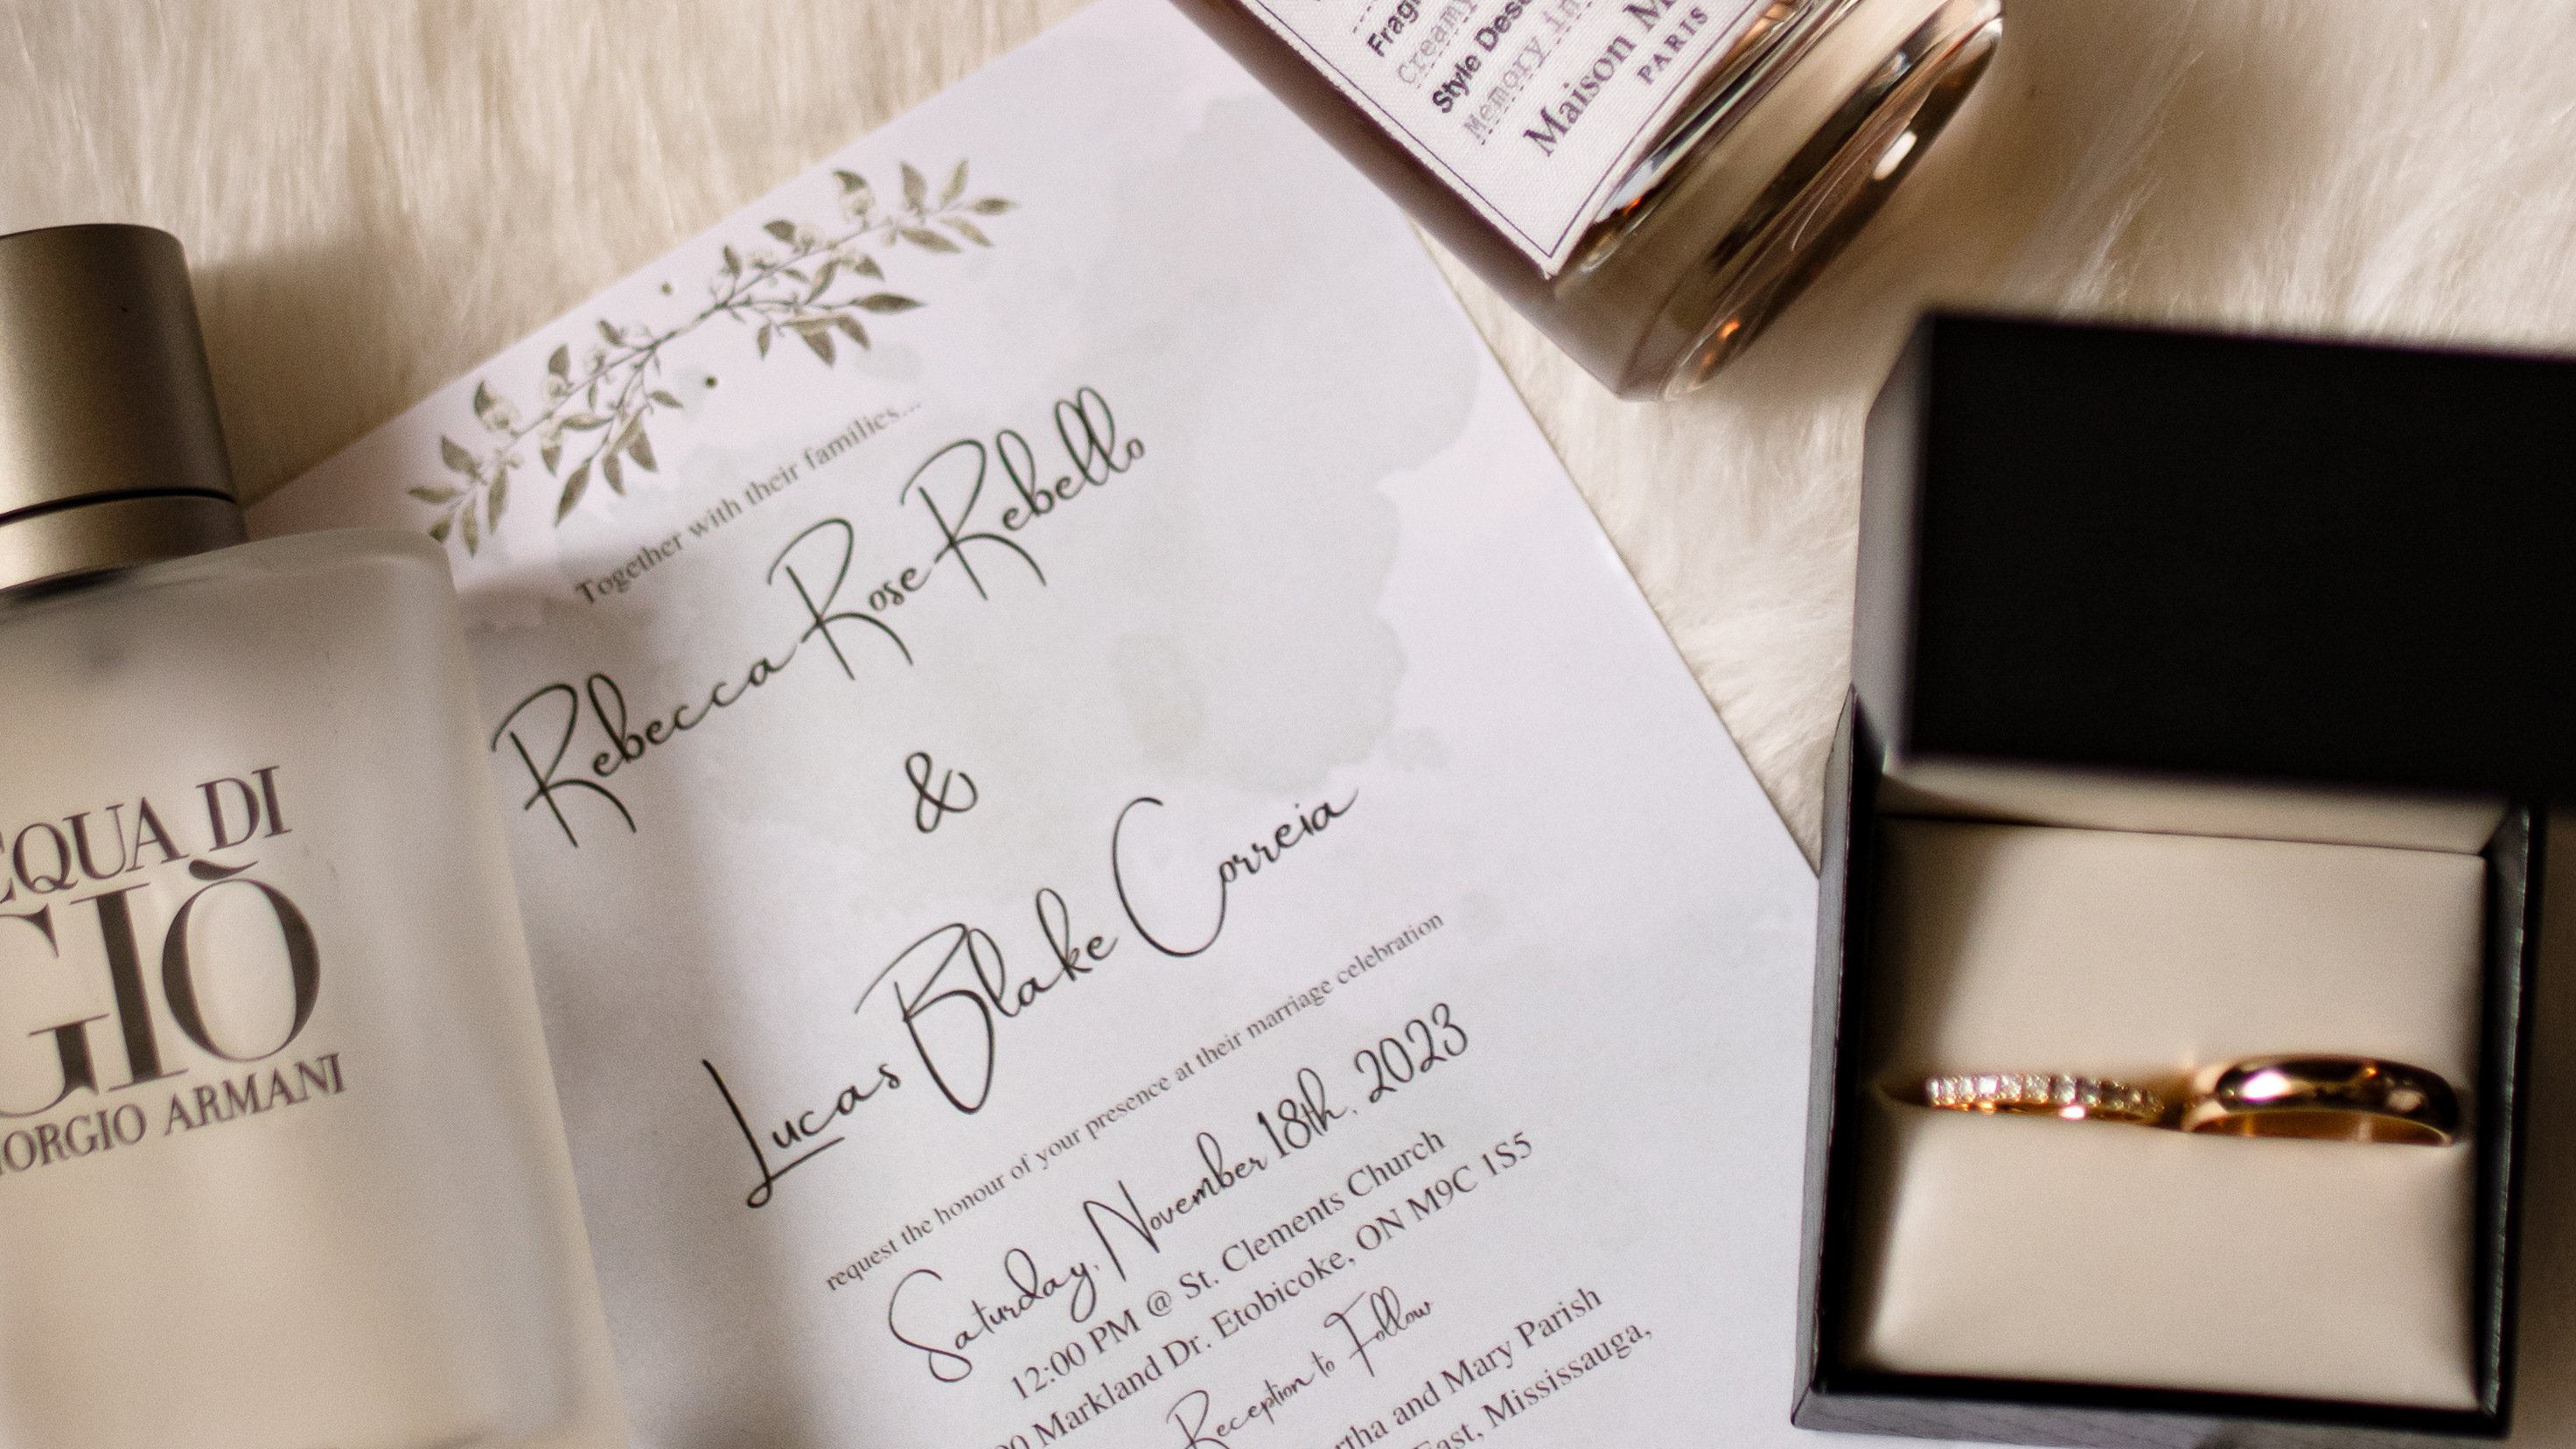 Together with their families...
Rebecca Rose Rebello
&
Lucas Blake Correia
request the honour of your presence at their marriage celebration
Saturday, November 18th, 2023
12:00 PM @ St. Clements Church
Markland Dr. Etobicoke, ON M9C 1S5
Reception to Follow
and Mary Parish
East, Mississauga,
DI
GIÒ
ARMANI
Style
Memory in
Maison
PARIS